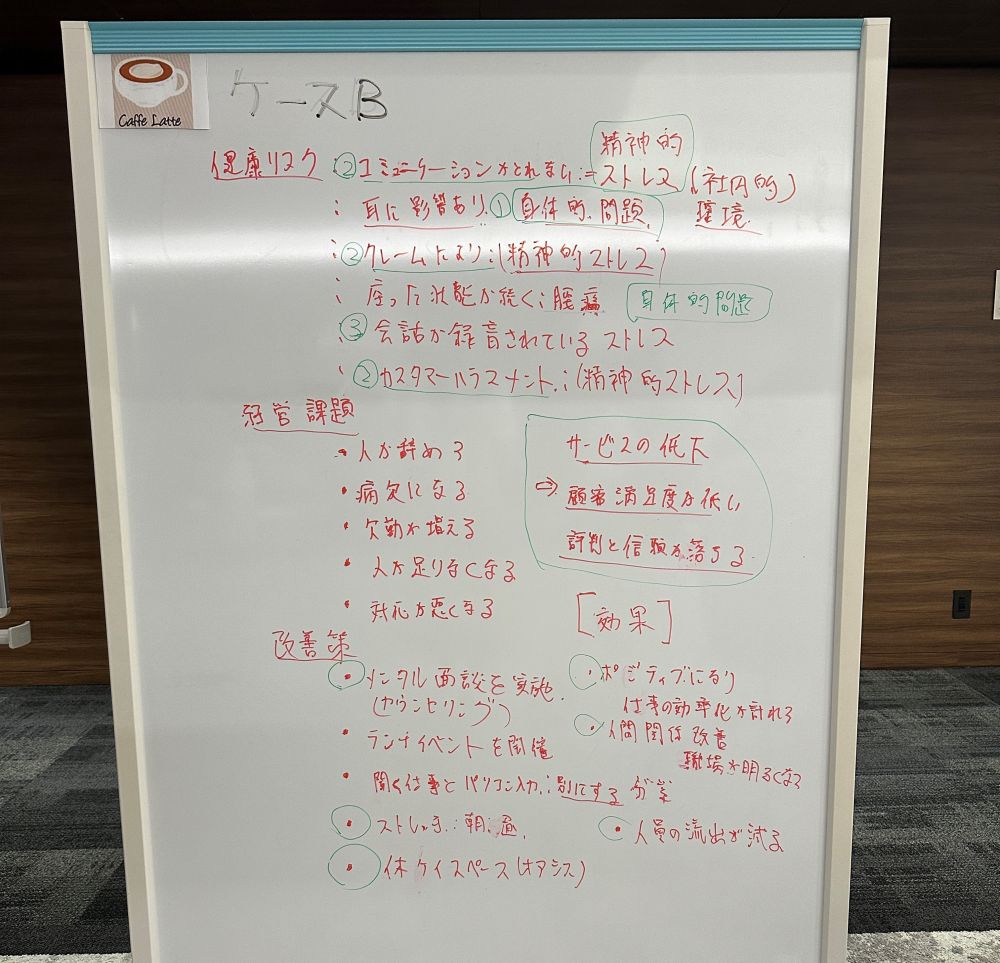 Caffe Latte
ケースB
健康リスク ②コミュニケーションがとれない:= 精神的ストレス (社内的)環境
: 耳に影響あり、① 身体的、問題、
: ② クレームたより:(精神的ストレス)
: 座った状態が続く:腰痛 身体的問題
③ 会話が録音されているストレス
② カスタマーハラスメント、:(精神的ストレス)
経営課題
・人が辞める
・病気になる
・欠勤が増える
・人が足りなくなる
・対応が悪くなる
サービスの低下
⇨ 顧客満足度が低い
評判と信頼が落ちる
改善策
・メンタル面談を実施
(カウンセリング)
・ランチイベントを開催
・聞く仕事とパソコン入力:別にする 分業
・ストレッチ:朝、昼、
・休ケイスペース(オアシス)
[効果]
・ポジティブになり
仕事の効率化が計れる
・人間関係改善
職場が明るくなる
・人員の流出が減る